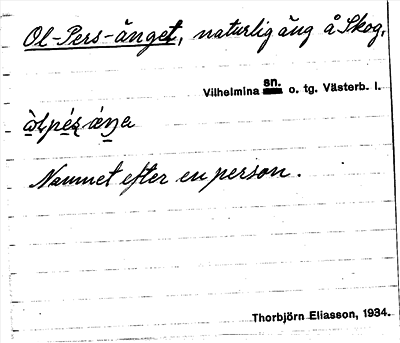 Ol-Pers-änget, naturlig äng å Skog.
Vilhelmina sn. o. tg. Västerb. l.
Namnet efter en person.
Thorbjörn Eliasson, 1934.